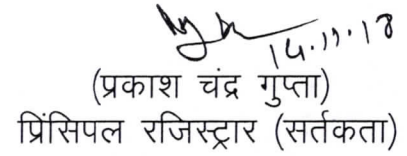 14.11.18
(प्रकाश चंद्र गुप्ता)
प्रिंसिपल रजिस्ट्रार (सर्तकता)